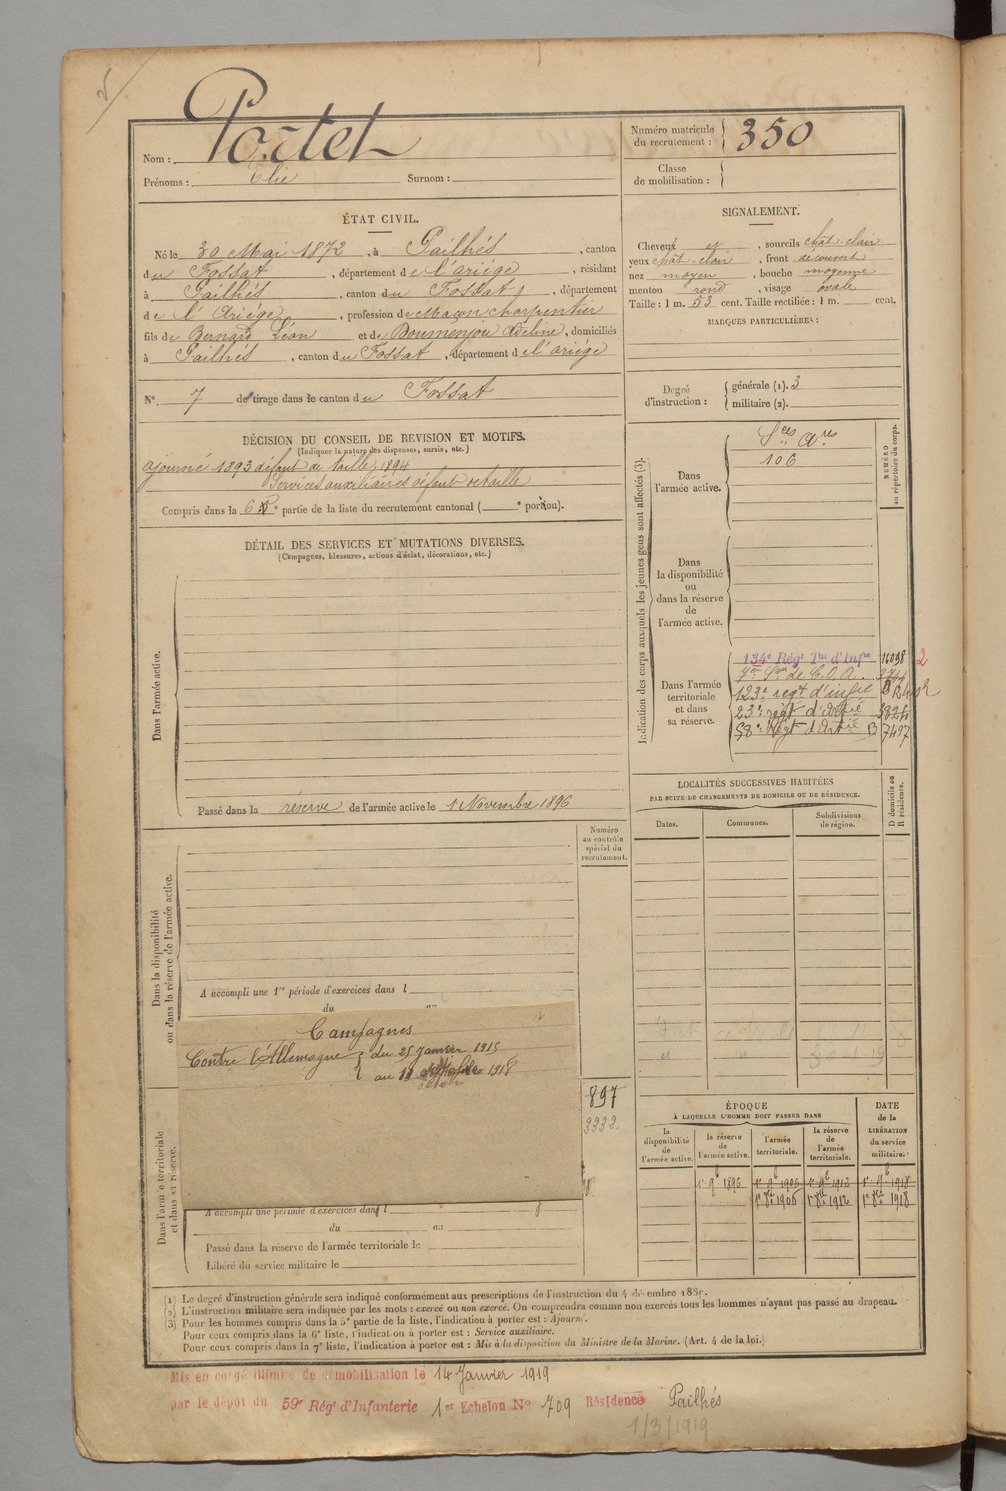 Nom : Portet
Prénoms : Elie Surnom :
Numéro matricule du recrutement : 350
Classe de mobilisation :
ÉTAT CIVIL.
Né le 30 Mai 1872, à Pailhés, canton
du Fossat, département de l'ariége, résidant
à Pailhés, canton du Fossat, département
de l'Ariége, profession de Maçon charpentier
fils de Bernard Léon et de Boumenjou Adeline, domiciliés
à Pailhés, canton du Fossat, département de l'ariége
N° 7 de tirage dans le canton du Fossat
DÉCISION DU CONSEIL DE REVISION ET MOTIFS.
(Indiquer la nature des dispenses, sursis, etc.)
ajourné 1893 défaut de taille, 1894
Services auxiliaires défaut de taille
Compris dans la 6e partie de la liste du recrutement cantonal ( e portion).
SIGNALEMENT.
Cheveux et, sourcils chât-clair
yeux chât-clair, front découvert
nez moyen, bouche moyenne
menton rond, visage ovale
Taille : 1 m. 53 cent. Taille rectifiée : 1 m. cent.
MARQUES PARTICULIÈRES :
Degré d'instruction :
générale (1). 3
militaire (2).
DÉTAIL DES SERVICES ET MUTATIONS DIVERSES.
(Campagnes, blessures, actions d'éclat, décorations, etc.)
Dans l'armée active.
Passé dans la réserve de l'armée active le 1 Novembre 1896
Indication des corps auxquels les jeunes gens sont affectés (3).
NUMÉRO au répertoire du corps.
Dans l'armée active.
Sces Ares
106
Dans la disponibilité ou dans la réserve de l'armée active.
Dans l'armée territoriale et dans sa réserve.
134e Régt Tal d'Infie 16098 2
de C.O.A.
123e regt d'infie
23e regt d'artie
58e Régt d'Artie B 7497
LOCALITÉS SUCCESSIVES HABITÉES
PAR SUITE DE CHANGEMENTS DE DOMICILE OU DE RÉSIDENCE.
Dates. Communes. Subdivisions de région. D domicile ou R résidence.
Numéro au contrôle spécial du recrutement.
Dans la disponibilité ou dans la réserve de l'armée active.
A accompli une 1re période d'exercices dans l
du
Campagnes
Contre l'Allemagne { du 25 Janvier 1915
au 1918
897
3332
Dans l'armée territoriale et dans sa réserve.
A accompli une période d'exercices dans l
du au
Passé dans la réserve de l'armée territoriale le
Libéré du service militaire le
ÉPOQUE
À LAQUELLE L'HOMME DOIT PASSER DANS
la disponibilité de l'armée active. la réserve de l'armée active. l'armée territoriale. la réserve de l'armée territoriale.
DATE de la LIBÉRATION du service militaire.
1er 9bre 1896 1er 9bre 1906 1er 9bre 1912 1er 9bre 1918
1er 8bre 1906 1er 8bre 1912 1er 8bre 1918
(1) Le degré d'instruction générale sera indiqué conformément aux prescriptions de l'instruction du 4 décembre 1889.
(2) L'instruction militaire sera indiquée par les mots : exercé ou non exercé. On comprendra comme non exercés tous les hommes n'ayant pas passé au drapeau.
(3) Pour les hommes compris dans la 5e partie de la liste, l'indication à porter est : Ajourné.
Pour ceux compris dans la 6e liste, l'indication à porter est : Service auxiliaire.
Pour ceux compris dans la 7e liste, l'indication à porter est : Mis à la disposition du Ministre de la Marine. (Art. 4 de la loi.)
Mis en congé illimité de démobilisation le 14 Janvier 1919
par le dépôt du 59e Régt d'Infanterie 1er Echelon N° 709 Résidence Pailhés
1/3/1919